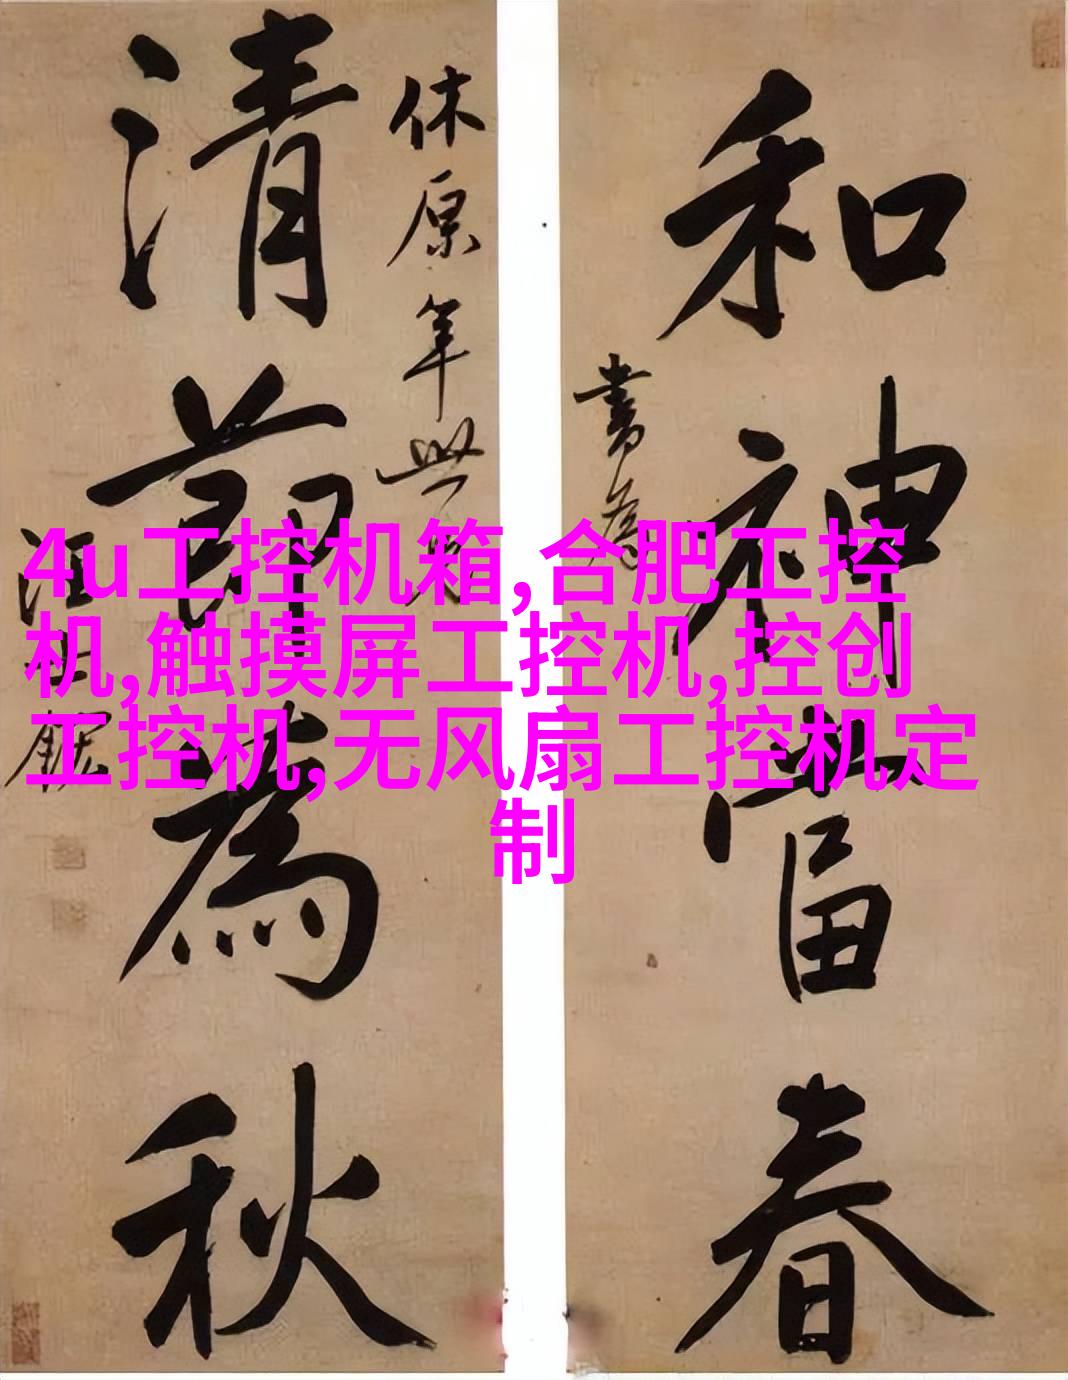 和神當春
書爲
休原年世兄
清節為秋
汪士鋐
4u工控机箱,合肥工控
机,触摸屏工控机,控创
工控机,无风扇工控机定
制